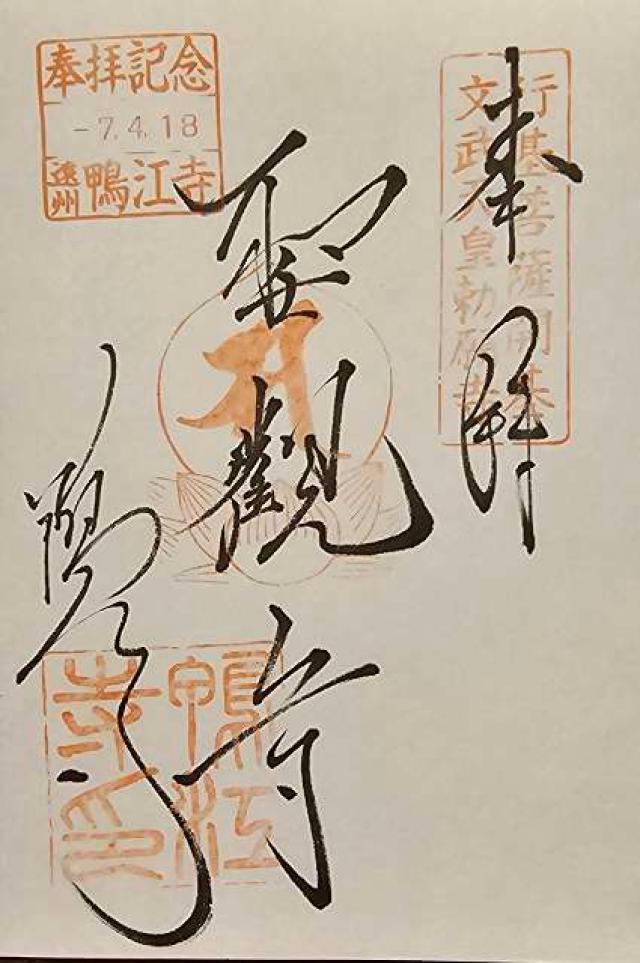 奉拝
行基菩薩開基
文武天皇勅願寺
聖観音
鴨江寺
奉拝記念
-7.4.18
遠州 鴨江寺
鴨江
寺印